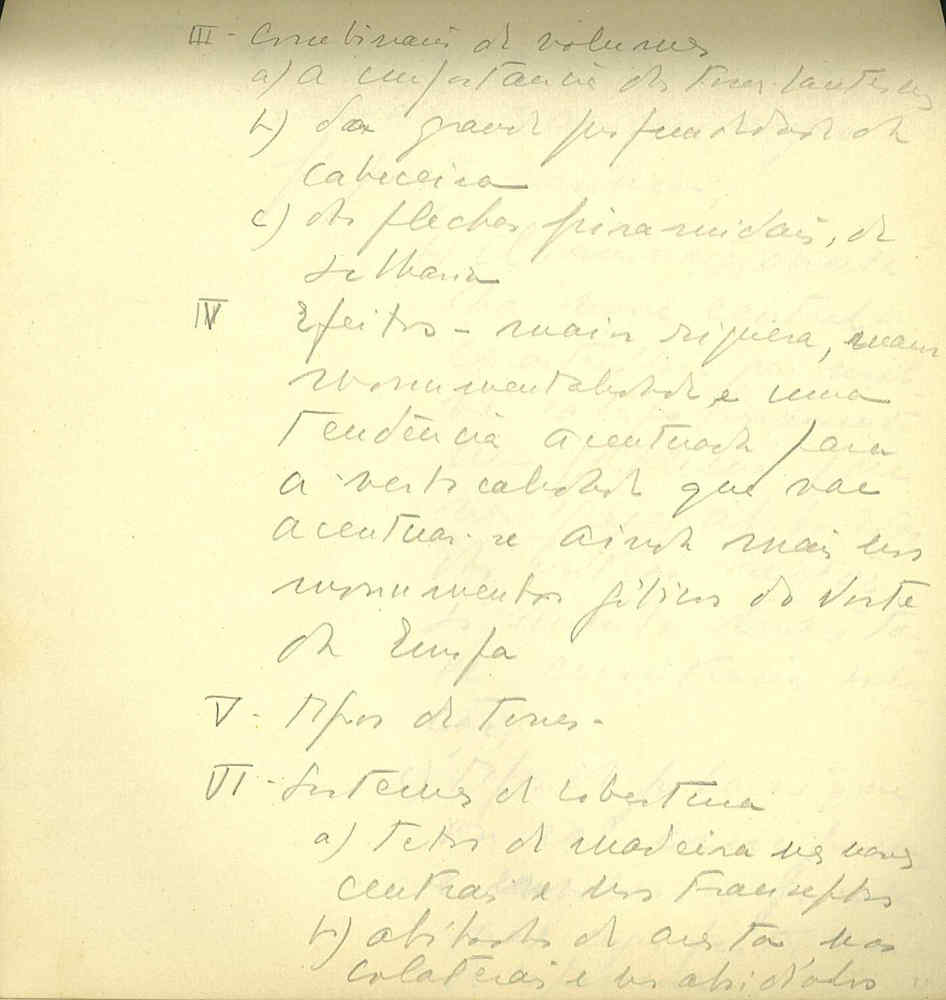 III - Combinação de volumes
a) a importancia das torres-lanternas
b) da grande profundidade da
cabeceira
c) das flechas piramidais, de
silharia
IV Efeitos - maior riqueza, maior
monumentalidade e uma
tendência acentuada para
a verticalidade que vae
acentuar-se ainda mais nos
monumentos góticos do Norte
da Europa
V - Tipos de torres -
VI - Sistemas de cobertura
a) tetos de madeira nas naves
centrais e nos transeptos
b) abóbadas de aresta nas
colaterais e os absidíolos